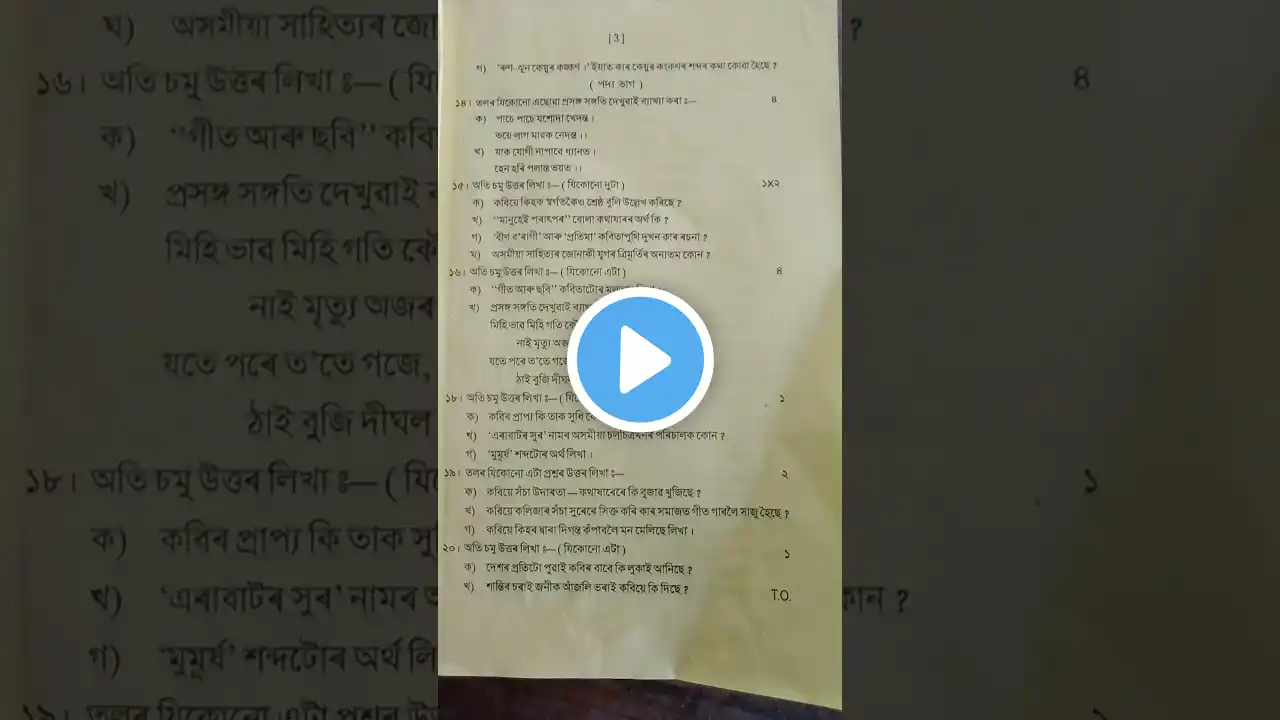 [3]
গ) 'ৰুণ-ঝুন কেয়ুৰ কঙ্কণ ।' ইয়াত কাৰ কেয়ুৰ কংকণৰ শব্দৰ কথা কোৱা হৈছে ?
( পদ্য ভাগ )
১৪। তলৰ যিকোনো এছোৱা প্ৰসঙ্গ সঙ্গতি দেখুৱাই ব্যাখ্যা কৰা ঃ— ৪
ক) পাচে পাচে যশোদা খৈদন্ত ।
ভয়ে লাগ মাৱক নেদন্ত ।।
খ) যাক যোগী নাপাৱে ধ্যানত ।
হেন হৰি পলান্ত ভয়ত ।।
১৫। অতি চমু উত্তৰ লিখা ঃ— ( যিকোনো দুটা ) ১X২
ক) কবিয়ে কিহক স্বৰ্গতকৈও শ্ৰেষ্ঠ বুলি উল্লেখ কৰিছে ?
খ) "মানুহেই পৰাৎপৰ" বোলা কথাষাৰৰ অৰ্থ কি ?
গ) 'বীণ ব'ৰাগী' আৰু 'প্ৰতিমা' কবিতাপুথি দুখন কাৰ ৰচনা ?
ঘ) অসমীয়া সাহিত্যৰ জোনাকী যুগৰ ত্ৰিমূৰ্তিৰ অন্যতম কোন ?
১৬। অতি চমু উত্তৰ লিখা ঃ— ( যিকোনো এটা ) ৪
ক) "গীত আৰু ছবি" কবিতাটোৰ
খ) প্ৰসঙ্গ সঙ্গতি দেখুৱাই
মিহি ভাৱ মিহি গতি
নাই মৃত্যু অজৰ
যতে পৰে ত'তে গজে,
ঠাই বুজি দীঘল
১৮। অতি চমু উত্তৰ লিখা ঃ— ১
ক) কবিৰ প্ৰাপ্য কি তাক সুধি
খ) 'এৰাবাটৰ সুৰ' নামৰ অসমীয়া চলচিত্ৰখনৰ পৰিচালক কোন ?
গ) 'মুমূৰ্ষ' শব্দটোৰ অৰ্থ লিখা ।
১৯। তলৰ যিকোনো এটা প্ৰশ্নৰ উত্তৰ লিখা ঃ— ২
ক) কবিয়ে সঁচা উদাৰতা — কথাষাৰেৰে কি বুজাব খুজিছে ?
খ) কবিয়ে কলিজাৰ সঁচা সুৰেৰে সিক্ত কৰি কাৰ সমাজত গীত গাবলৈ সাজু হৈছে ?
গ) কবিয়ে কিহৰ দ্বাৰা দিগন্ত কঁপাবলৈ মন মেলিছে লিখা ।
২০। অতি চমু উত্তৰ লিখা ঃ— ( যিকোনো এটা ) ১
ক) দেশৰ প্ৰতিটো পুৱাই কবিৰ বাবে কি লুকাই আনিছে ?
খ) শান্তিৰ চৰাই জনীক আঁজলি ভৰাই কবিয়ে কি দিছে ?
T.O.